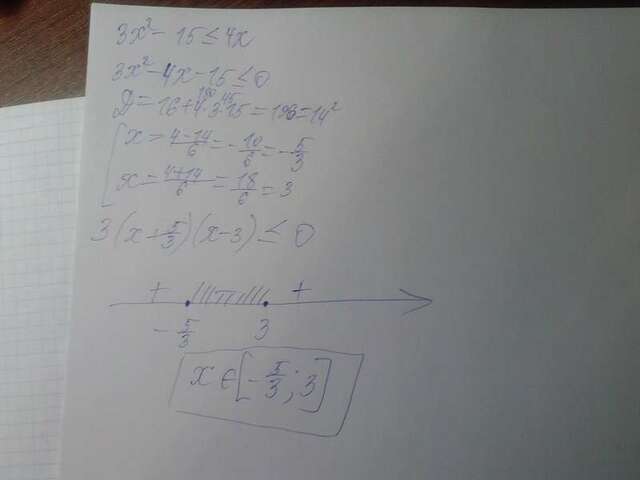 3x² - 15 ≤ 4x
3x² - 4x - 15 ≤ 0
180 45
D = 16 + 4·3·15 = 196 = 14²
x = (4-14)/6 = -10/6 = -5/3
x = (4+14)/6 = 18/6 = 3
3(x + 5/3)(x - 3) ≤ 0
+ +
-5/3 3
x ∈ [-5/3; 3]